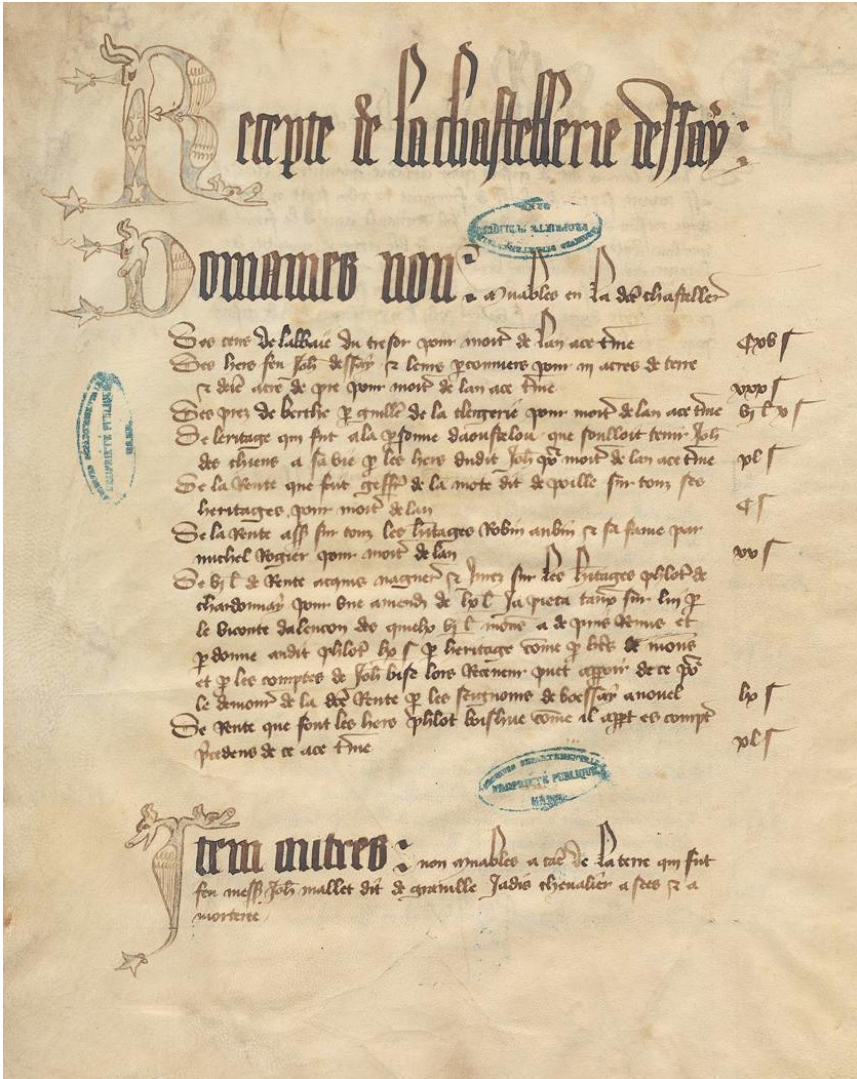 Recepte de la chastellerie dessay :
Domaines non : muables en la dce chastellerie
Des cens de labbaie du tresor pour moit de lan ace tme Cxv s
Des hers feu Joh dessay & leurs pconniers pour III acres de terre
& deie acre de pre pour moit de lan ace tme xxx s
Des prez de berthe p guille de la clergerie pour moit de lan ace tme VI l x s
De leritage qui fut a la psonne daoustelou que soulloit tenir Joh
des chiens a sa vie p les hers dudit Joh po moit de lan ace tme xl s
De la Rente que fut geffr de la mote dit de poille sur touz ses
heritages pour moit de lan C s
De la Rente ass sur touz les hitages Robin aubin & sa fame par
michel Rogier pour moit de lan xv s
De VI l de Rente acquis naguer & sur les hitages philot de
chardonnay pour une amende de LX l Ja pieca taux sur lui p
le viconte dalencon des quielx VI l mons a de puis Remis et
pdonne audit philot LX s p heritage come p lres de mons
et p les comptes de Joh bise lors Receveur puet apparoir de ce po
le demour de la dce Rente p les seignours de boessay a nouel LX s
De Rente que font les hers philot boishue come il appt es compt
pcedens de ce ace tme xl s
Item autres : non muables a cae de la terre qui fut
feu mess Joh mallet dit de graville Jadis chevalier a sees & a
morteree
PROPRIÉTÉ PUBLIQUE
ARCHIVES DEPARTEMENTALES
PROPRIÉTÉ PUBLIQUE